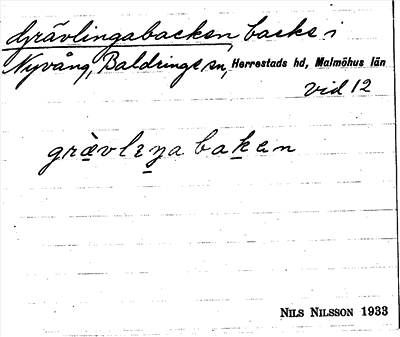 Grävlingabacken, backe i
Nyvång, Baldringe sn, Herrestads hd, Malmöhus län
vid 12
grävliŋa baken
NILS NILSSON 1933